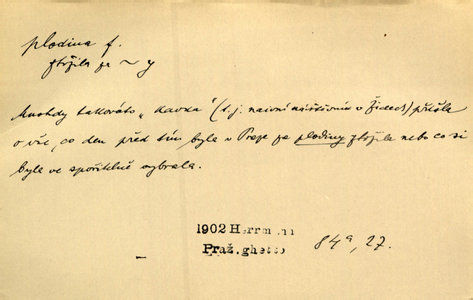 plodina f.
složila za ~ y
Mnohdy takováto „kavka“ (t.j. naivní návštěvnice v Židech) přišla
o vše, co den před tím byla v Praze za plodiny složila nebo co si
byla ve spořitelně vybrala.
1902 Herrmann
Praž. ghetto 84a, 27.